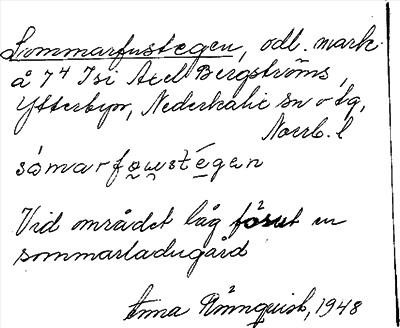 Sommarfustegen, odl. mark
å 7⁴ Isi Axel Bergströms,
Ytterbyn, Nederkalix sn o tg,
Norrb. l
Vid området låg förut en
sommarladugård
Anna Rönnquist, 1948